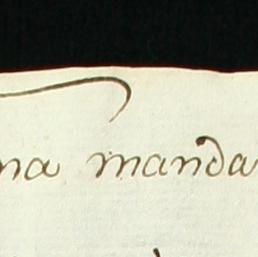 na manda